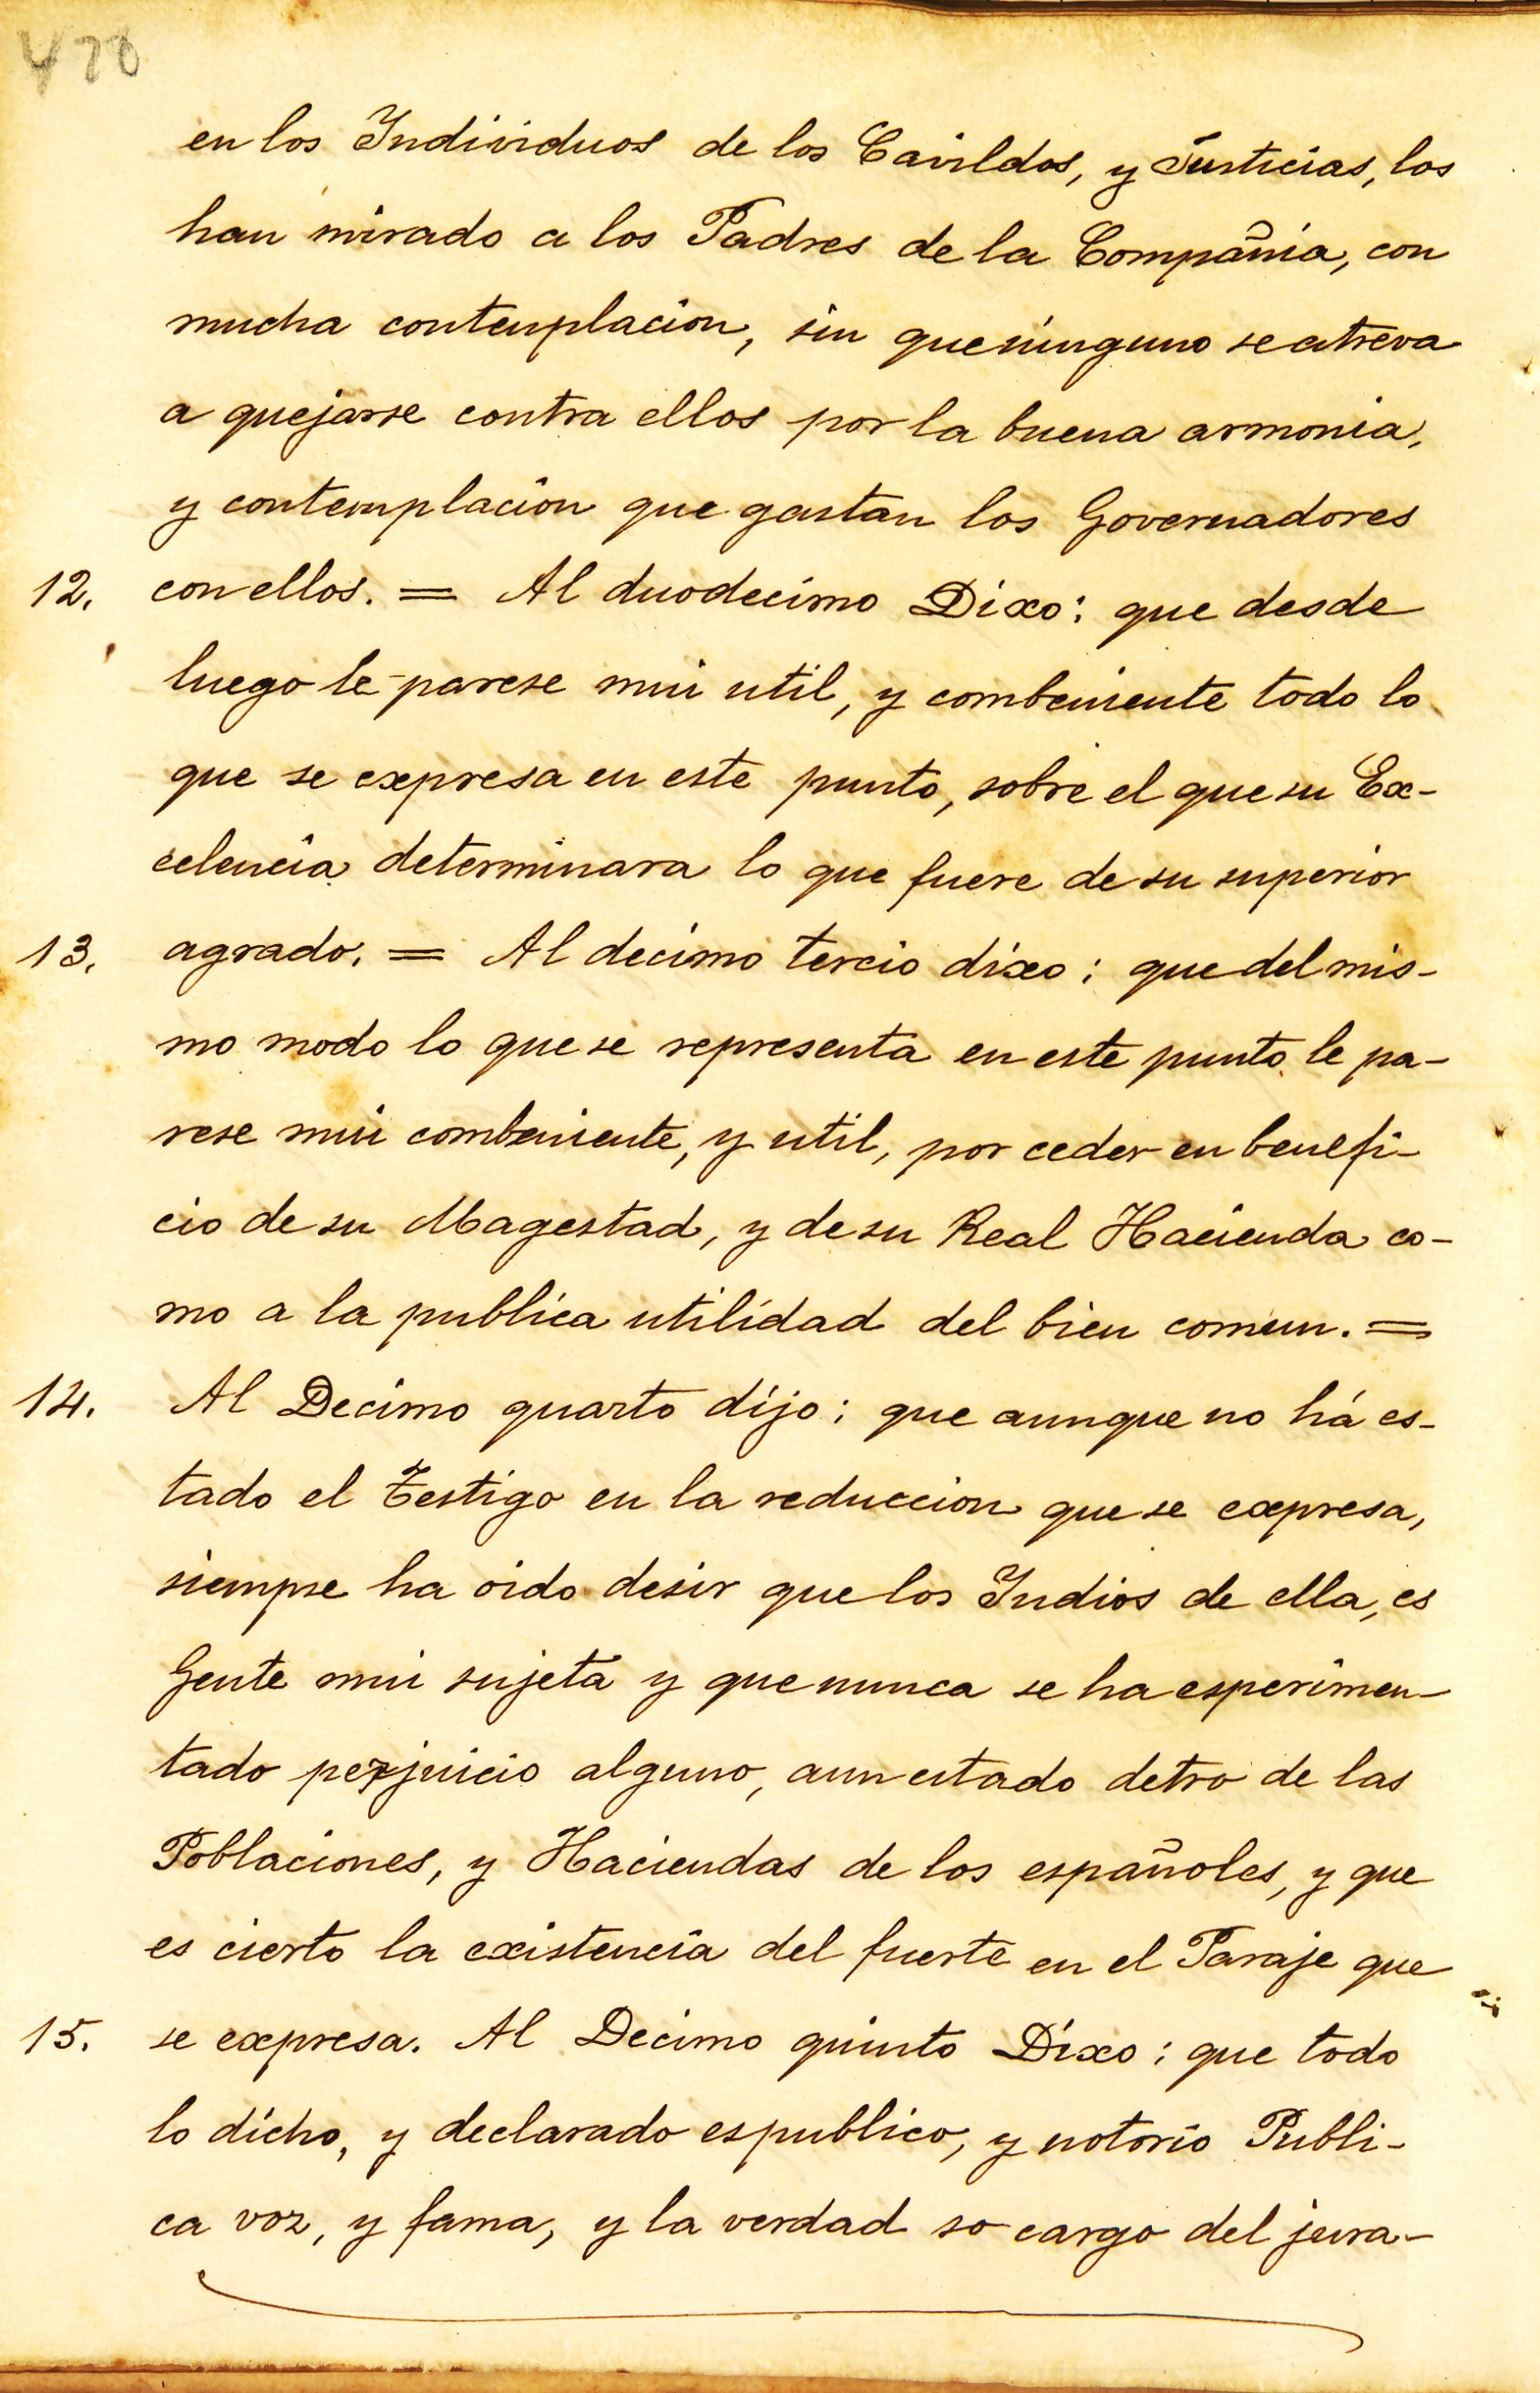 470
en los Individuos de los Cavildos, y Justicias, los
han mirado a los Padres de la Compañia, con
mucha contenplacion, sin queninguno se atreva
a quejarse contra ellos por la buena armonia,
y contemplacion que gastan los Governadores
12. con ellos. = Al duodecimo Dixo: que desde
luego le parese mui util, y combeniente todo lo
que se expresa en este punto, sobre el que su Ex-
celencia determinara lo que fuere de su superior
13. agrado. = Al decimo tercio dixo: que del mis-
mo modo lo que se representa en este punto le pa-
rese mui combeniente, y util, por ceder en benefi-
cio de su Magestad, y de su Real Hacienda co-
mo a la publica utilidad del bien comun. =
14. Al Decimo quarto dijo: que aunque no há es-
tado el Testigo en la reduccion que se expresa,
siempre ha oido desir que los Indios de ella, es
Gente mui sujeta y que nunca se ha esperimen-
tado perjuicio alguno, aun estado detro de las
Poblaciones, y Haciendas de los españoles, y que
es cierto la existencia del fuerte en el Paraje que
15. se expresa. Al Decimo quinto Dixo: que todo
lo dicho, y declarado es publico, y notorio Publi-
ca voz, y fama, y la verdad so cargo del jura-